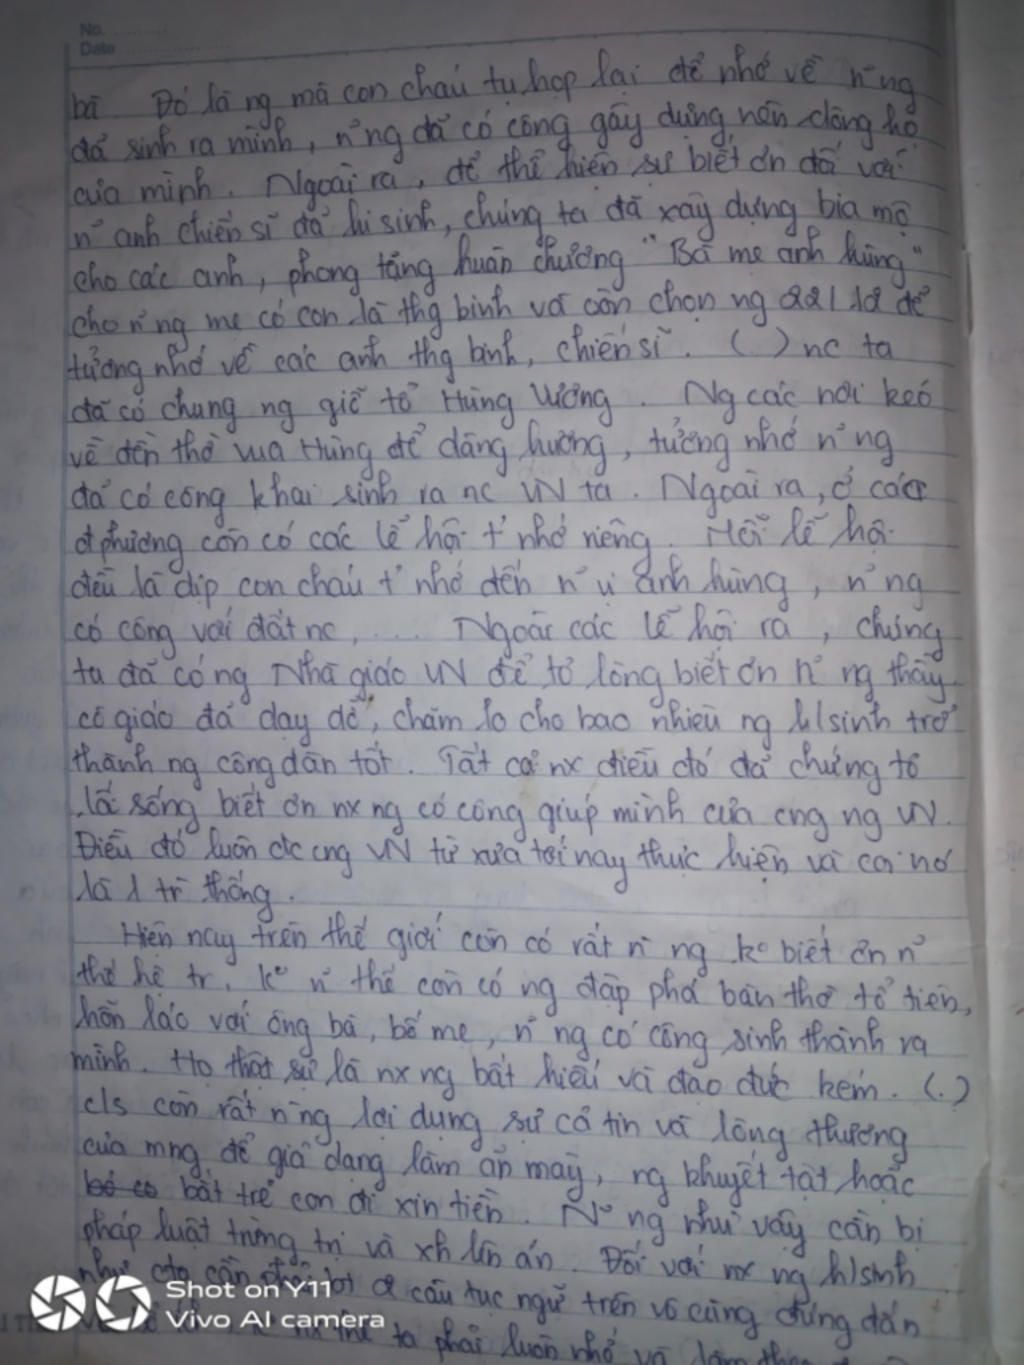 No.
Date
bà Đó là ng mà con cháu tụ họp lại để nhớ về n~ng
đã sinh ra mình, n~ng đã có công gây dựng nên dòng họ
của mình. Ngoài ra, để thể hiện sự biết ơn đối với
n~ anh chiến sĩ đã hi sinh, chúng ta đã xây dựng bia mộ
cho các anh, phong tặng huân chương "Bà mẹ anh hùng"
cho n~ng mẹ có con là thg binh và còn chọn ng 22/12 để
tưởng nhớ về các anh thg binh, chiến sĩ. ( ) nc ta
đã có chung ng giỗ tổ Hùng Vương. Ng các nơi kéo
về đền thờ vua Hùng để dâng hương, tưởng nhớ n~ng
đã có công khai sinh ra nc VN ta. Ngoài ra, ở các
đ phương còn có các lễ hội t' nhớ riêng. Mỗi lễ hội
đều là dịp con cháu t' nhớ đến n~ vị anh hùng, n~ng
có công với đất nc, ... Ngoài các lễ hội ra, chúng
ta đã có ng Nhà giáo VN để tỏ lòng biết ơn n~ng thầy
cô giáo đã dạy dỗ, chăm lo cho bao nhiêu ng h/sinh trở
thành ng công dân tốt. Tất cả nx điều đó đã chứng tỏ
lẽ sống biết ơn nx ng có công giúp mình của cng ng VN.
Điều đó luôn đc cng VN từ xưa tới nay thực hiện và coi nó
là 1 tr thống.
Hiện nay trên thế giới còn có rất n` ng ko biết ơn n~
thế hệ tr, ko n~ thế còn có ng đập phá bàn thờ tổ tiên,
hỗn láo với ông bà, bố mẹ, n~ng có công sinh thành ra
mình. Họ thật sự là nx ng bất hiếu và đạo đức kém. (.)
c/s còn rất n` ng lợi dụng sự cả tin và lòng thương
của mng để giả dạng làm ăn mày, ng khuyết tật hoặc
bắt trẻ con đi xin tiền. N~ ng như vậy cần bị
pháp luật trừng trị và xh lên án. Đối với nx ng h/sinh
như cta cần câu tục ngữ trên vô cùng đúng đắn
ta phải luôn nhớ và làm
Shot on Y11
Vivo AI camera